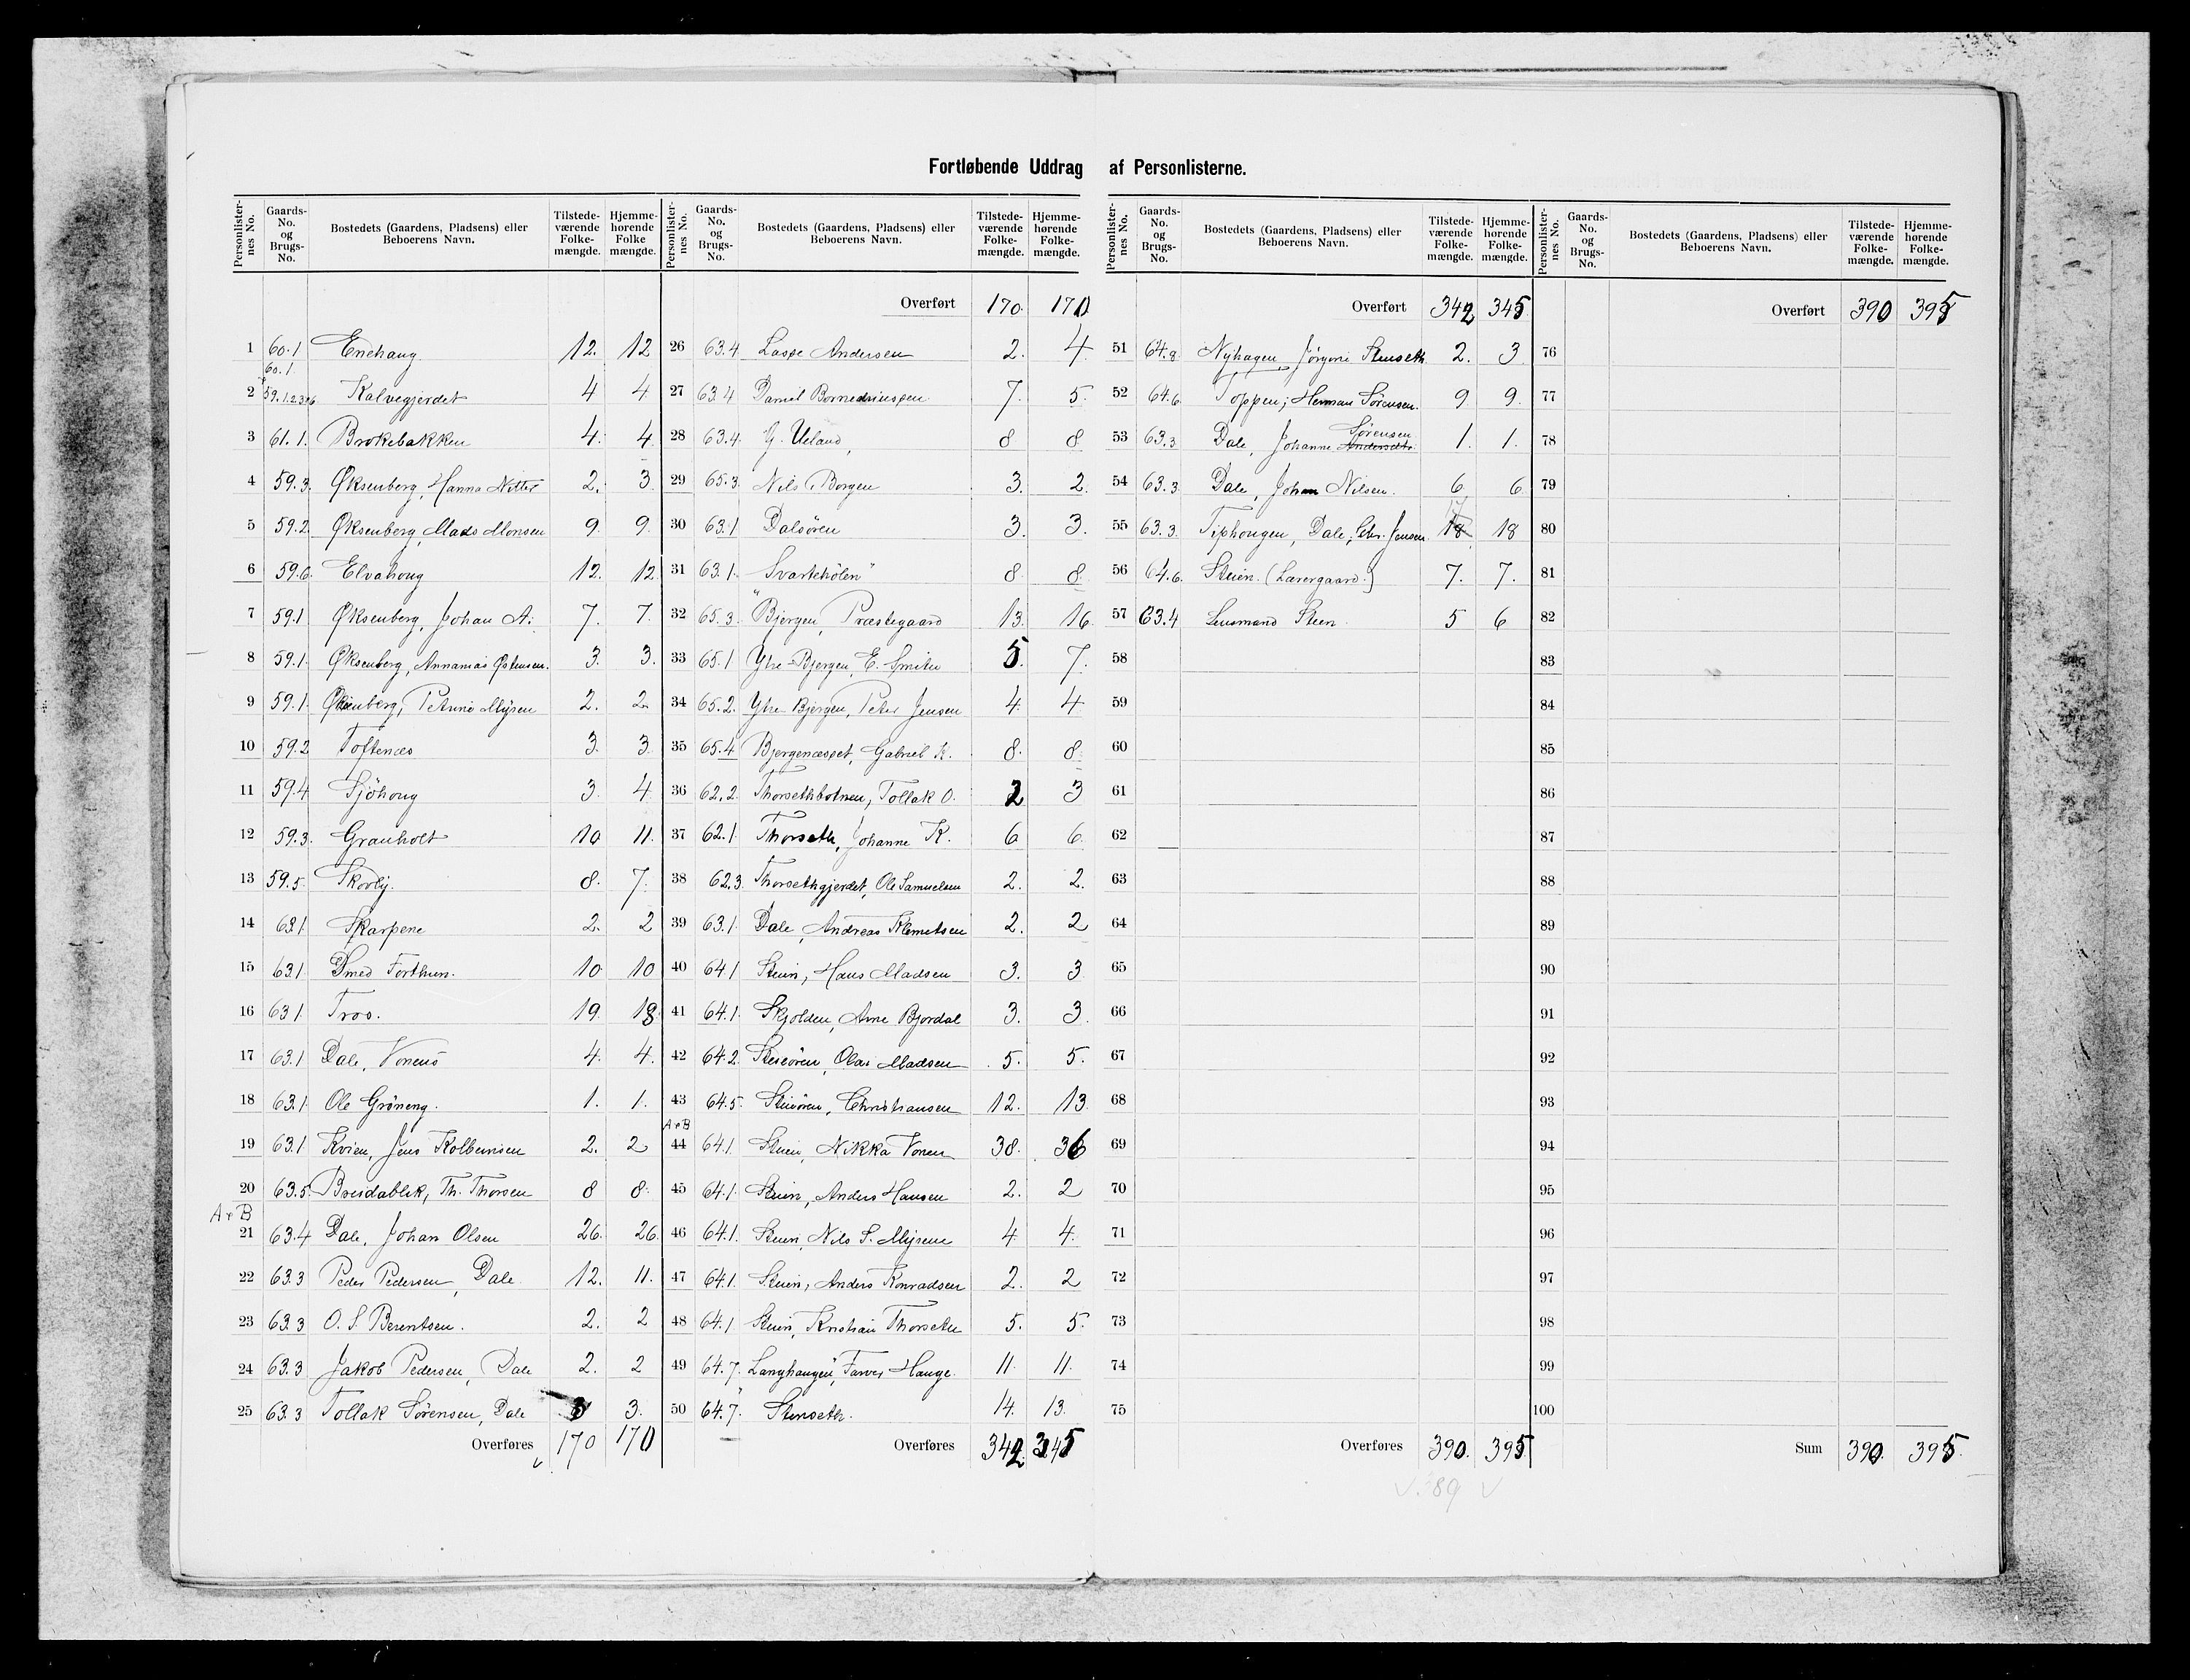 Fortløbende Uddrag af Personlisterne.
Personlister-nes No. | Gaards-No. og Brugs-No. | Bostedets (Gaardens, Pladsens) eller Beboerens Navn. | Tilstede-værende Folke-mængde. | Hjemme-hørende Folke mængde.
1 60.1 Enehaug 12. 12
60.1
2 59.1.2.3.6 Kalvegjerdet 4 4
3 61.1. Brokebakken 4. 4
4 59.3. Øksenberg, Hanna Nitter 2. 3
5 59.2 Øksenberg, Mads Monsen 9. 9.
6 59.6 Elvahoug 12. 12
7 59.1 Øksenberg, Johan A. 7. 7.
8 59.1. Øksenberg, Annanias Østensen. 3. 3.
9 59.1. Øksenberg, Petrine Myren 2. 2
10 59.2 Toftenæs 3. 3
11 59.4 Sjöhoug 3. 4
12 59.3. Granholt 10 11.
13 59.5. Skovly. 8. 7.
14 63.1 Skarpene 2. 2
15 63.1 Smed Forthun. 10. 10
16 63.1 Troo. 19. 18
17 63.1 Dale, Vonens 4. 4.
18 63.1 Ole Gröneng. 1. 1.
19 63.1 Kvien, Jens Kolbeinsen 2. 2
20 63.5 Breidablik, Th. Thorsen 8 8.
A+B
21 63.4 Dale, Johan Olsen 26. 26.
22 63.3 Peder Pedersen, Dale. 12. 11.
23 63.3 O. S. Berentsen. 2. 2
24 63.3 Jakob Pedersen, Dale 2. 2
25 63.3 Tollak Sørensen, Dale 3 3.
Overføres 170 170
Personlister-nes No. | Gaards-No. og Brugs-No. | Bostedets (Gaardens, Pladsens) eller Beboerens Navn. | Tilstede-værende Folke-mængde. | Hjemme-hørende Folke-mængde.
Overført 170. 170
26 63.4 Lasse Andersen 2. 4.
27 63.4 Daniel 7. 5.
28 63.4. G. Ueland, 8 8.
29 65.3 Nils Borgen 3. 2.
30 63.1 Dalsören 3. 3.
31 63.1. Svartehölen" 8. 8.
32 65.3. "Bjergen, Præstegaard 13. 16.
33 65.1 Ytre-Bjergen, E. Smith 5. 7.
34 65.2. Ytre Bjergen, Peter Jensen 4. 4
35 65.4 Bjergenæsset, Gabriel K. 8. 8.
36 62.2. Thorsethbotnen, Tollak O. 2 3
37 62.1. Thorseth, Johanne K. 6 6.
38 62.3. Thorsethgjerdet, Ole Samuelsen 2. 2.
39 63.1. Dale, Andreas Klemetsen 2. 2
40 64.1 Steen, Hans Madsen 3. 3
41 64.1. Skjolden, Arne Bjordal 3. 3.
42 64.2. Steieören, Olai Madsen 5. 5.
43 64.5. Steiören, Christiansen 12. 13.
A+B
44 64.1. Steen, Nikka Vonen 38. 36
45 64.1. Steen, Anders Hansen 2. 2
46 64.1. Steen, Nils S. Myrene 4. 4.
47 64.1. Steen, Anders Konradsen 2. 2
48 64.1 Steen, Kristian Thorseth 5. 5.
49 64.7. Langhaugen, Farver Hauge. 11. 11.
50 64.7. Stenseth. 14. 13.
Overføres 342. 345
Personlister-nes No. | Gaards-No. og Brugs-No. | Bostedets (Gaardens, Pladsens) eller Beboerens Navn. | Tilstede-værende Folke-mængde. | Hjemme-hørende Folke-mængde.
Overført 342 345
51 64.8. Nyhagen, Jörgine Stenseth 2. 3
52 64.6. Toppen; Herman Sörensen. 9 9.
Sørensen
53 63.3 Dale, Johanne Andersdtr. 1. 1.
54 63.3 Dale, Johan Nilsen. 6. 6.
17
55 63.3. Tiphougen, Dale; Chr. Jensen. 18 18
56 64.6. Steien. (Lærergaard.) 7. 7.
57 63.4 Lensmand Steen. 5 6
58
59
60
61
62
63
64
65
66
67
68
69
70
71
72
73
74
75
Overføres 390. 395
v. 389 v
Personlister-nes No. | Gaards-No. og Brugs-No. | Bostedets (Gaardens, Pladsens) eller Beboerens Navn. | Tilstede-værende Folke-mængde. | Hjemme-hørende Folke-mængde.
Overført 390 395
76
77
78
79
80
81
82
83
84
85
86
87
88
89
90
91
92
93
94
95
96
97
98
99
100
Sum 390. 395.